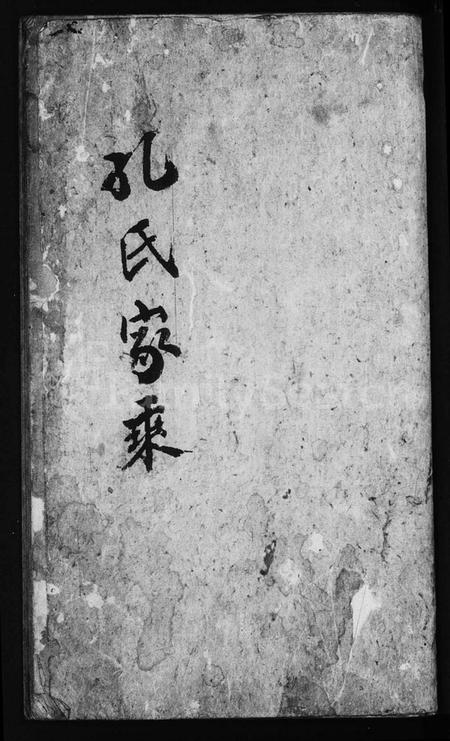 孔氏家乘
FamilySearch